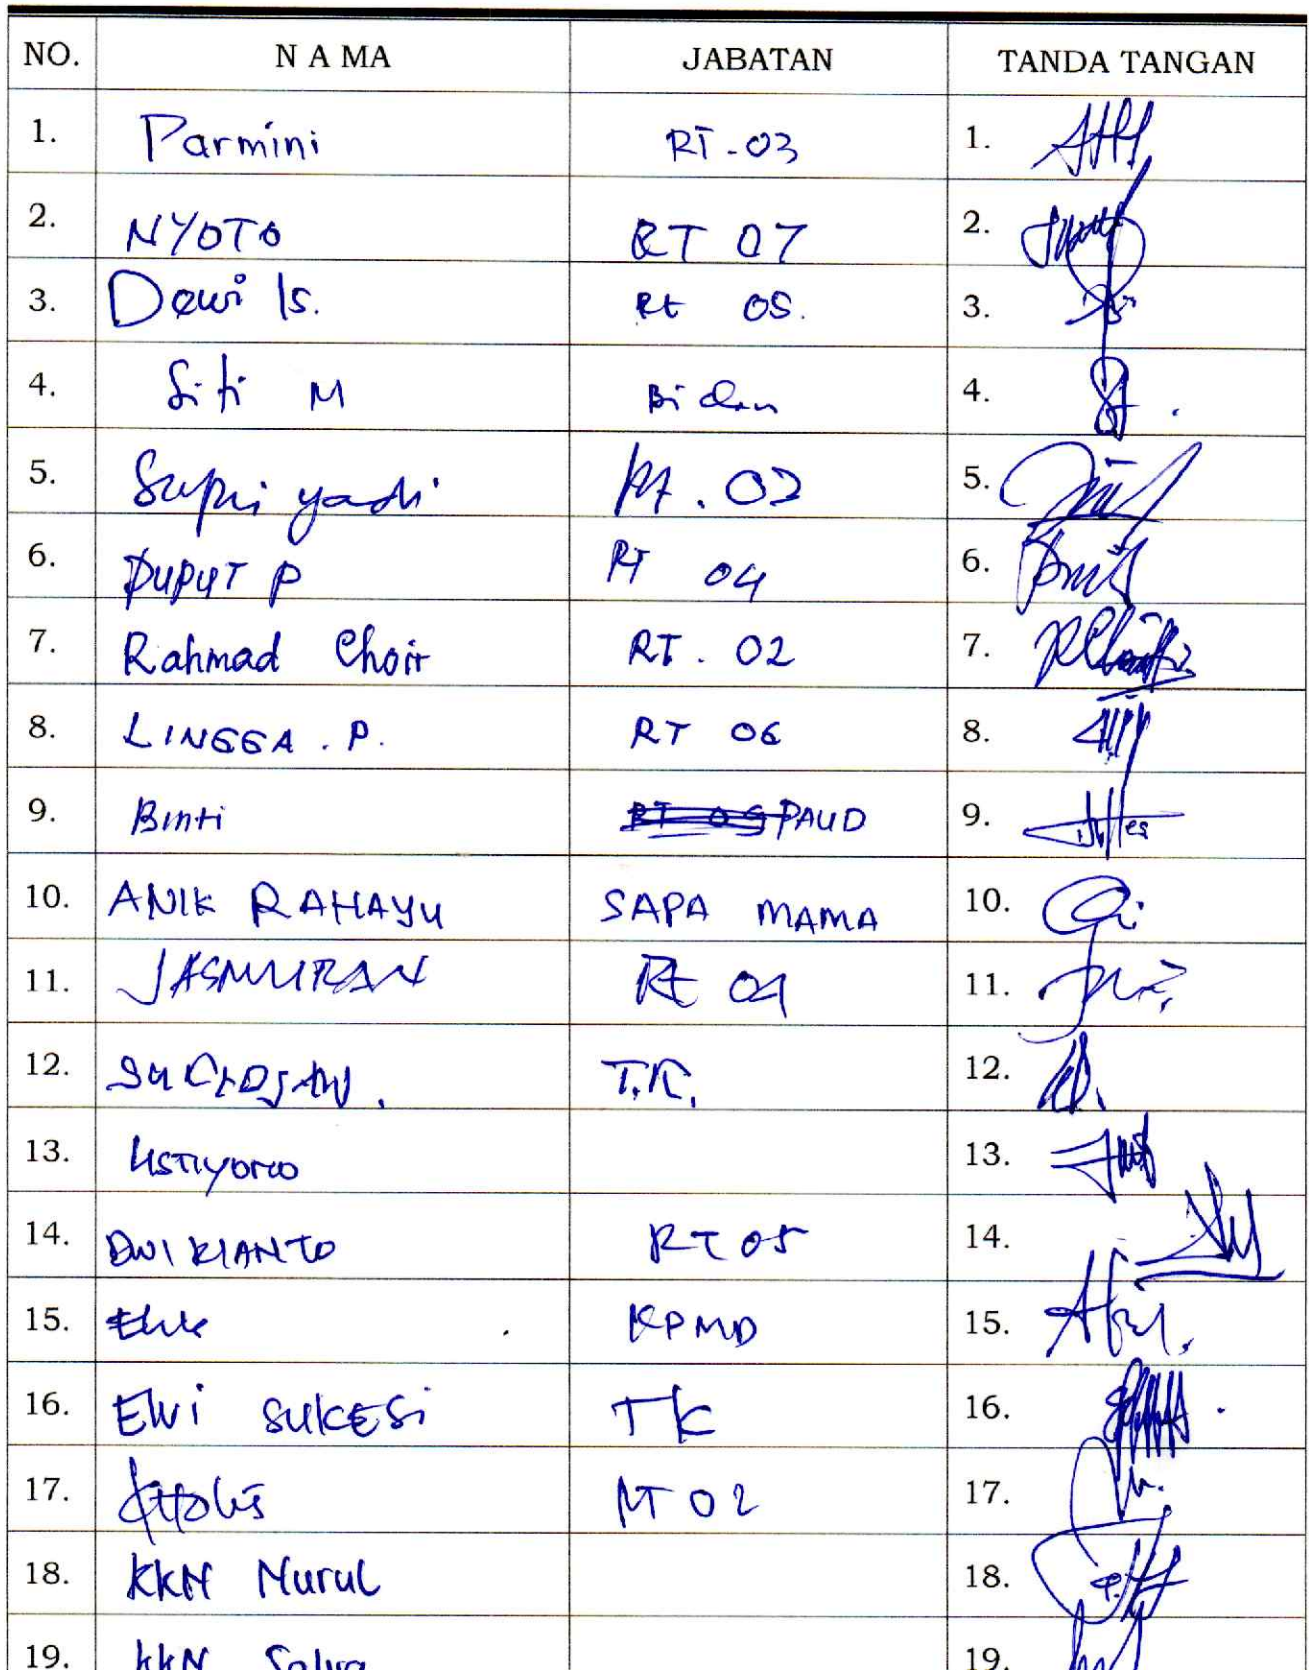 NO. N A M A JABATAN TANDA TANGAN
1. Parmini RT-03 1.
2. NYOTO RT 07 2.
3. Dewi Is. Rt 05. 3.
4. Siti M Bidan 4.
5. Supri yadi Rt. 02 5.
6. PUPUT P RT 04 6.
7. Rahmad Choir RT. 02 7.
8. LINGGA . P. RT 06 8.
9. Binti PAUD 9.
10. ANIK RAHAYU SAPA MAMA 10.
11. JASMURAN Rt 01 11.
12. T.K. 12.
13. 13.
14. DWI RIANTO RT 05 14.
15. KPMD 15.
16. Elvi SUKESI TK 16.
17. RT 02 17.
18. KKN Nurul 18.
19. KKN Salwa 19.